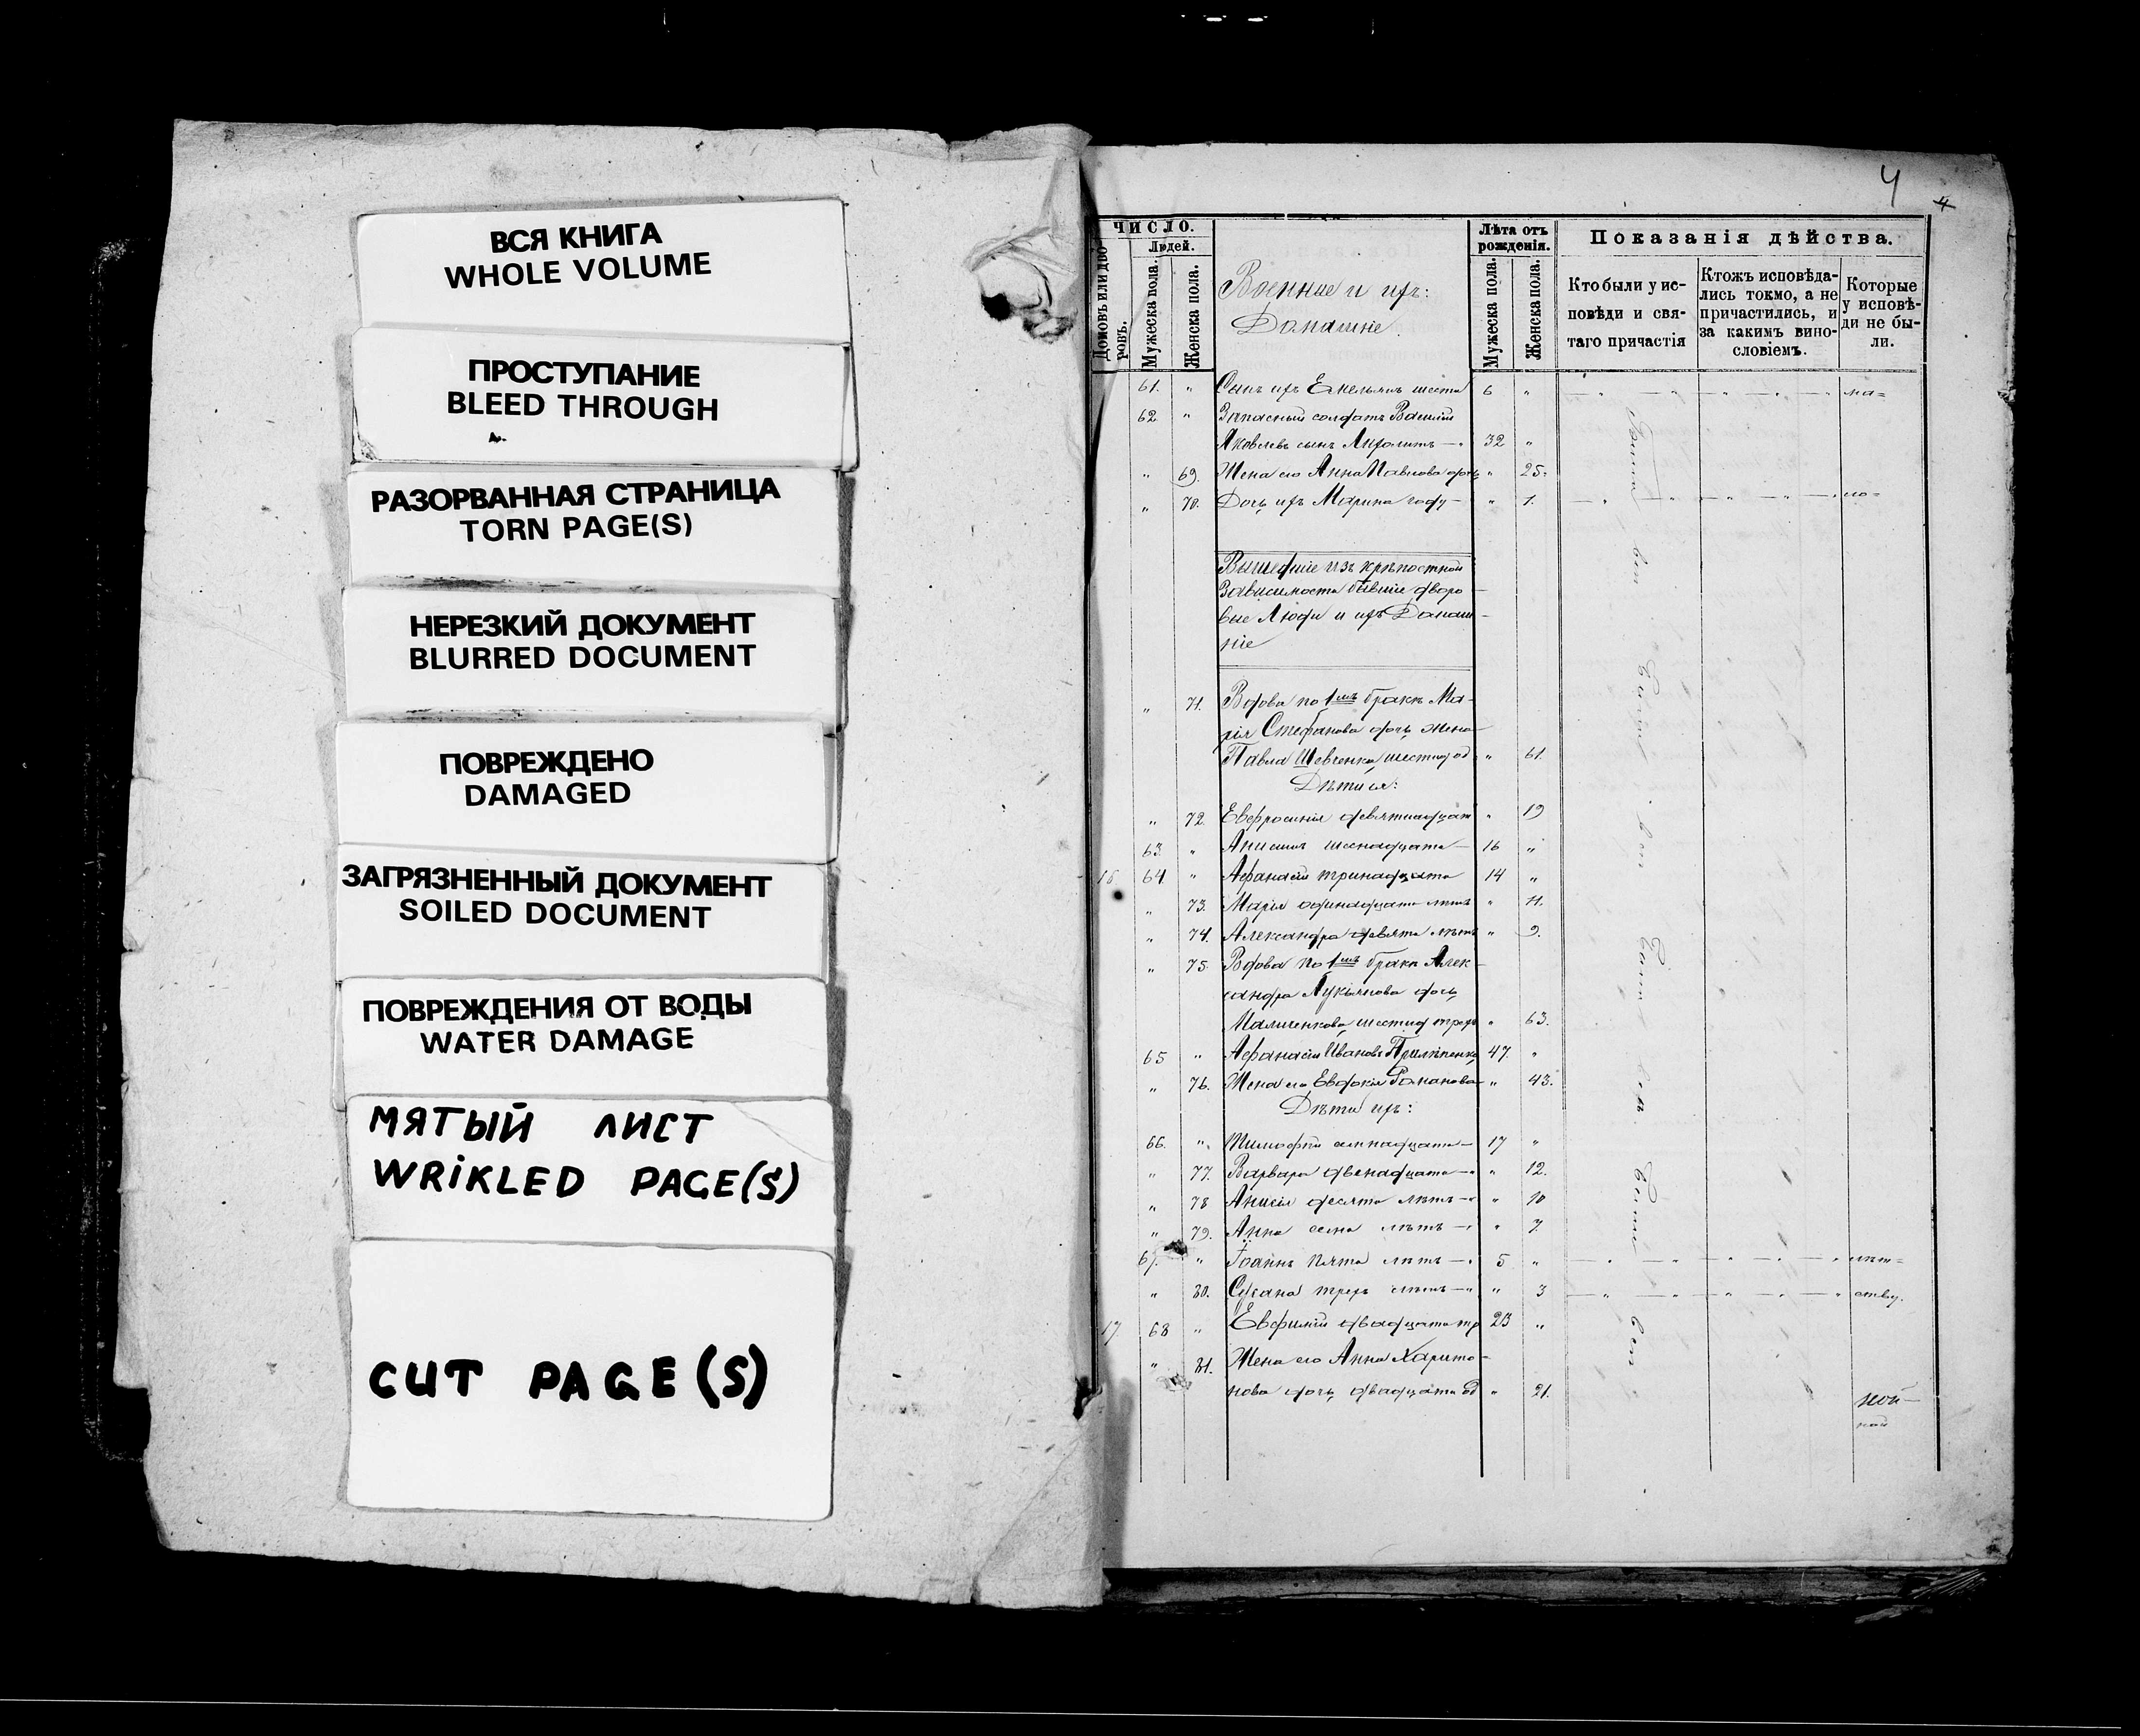 ВСЯ КНИГА
WHOLE VOLUME
ПРОСТУПАНИЕ
BLEED THROUGH
РАЗОРВАННАЯ СТРАНИЦА
TORN PAGE(S)
НЕРЕЗКИЙ ДОКУМЕНТ
BLURRED DOCUMENT
ПОВРЕЖДЕНО
DAMAGED
ЗАГРЯЗНЕННЫЙ ДОКУМЕНТ
SOILED DOCUMENT
ПОВРЕЖДЕНИЯ ОТ ВОДЫ
WATER DAMAGE
МЯТЫЙ ЛИСТ
WRIKLED PAGE(S)
CUT PAGE(S)
4
4
ЧИСЛО.
Домовъ или дворовъ.
Людей.
Мужеска пола.
Женска пола.
Военные и ихъ:
Домашніе.
Лѣта отъ
рожденія.
Мужеска пола.
Женска пола.
Показанія дѣйства.
Кто были у ис-
повѣди и свя-
таго причастія
Ктожъ исповѣда-
лись токмо, а не
причастились, и
за какимъ вино-
словіемъ.
Которые
у исповѣ-
ди не бы-
ли.
61. " Сынъ ихъ Емельянъ шести 6 " ма=
62 " Запасный солдатъ Василій
Яковлевъ сынъ 32 "
" 69. Жена его Анна Павлова дочь " 25.
" 70. Дочь ихъ Марина году " 1. ло=
Вышедшіе изъ крѣпостной
Зависимости бывшіе дворо
вые Люди и ихъ Домаш
ніе
" 71. Вдова по 1мъ бракѣ Ма-
рія Стефанова дочь жена
Павла Шевченка, шестид од " 61.
Дѣти ея:
" 72. Евфросинія девятнадцат " 19
63 " Анисимъ шестнадцати 16 "
16 64. " Афанасій тринадцати 14 "
" 73. Марія одинадцати лѣтъ " 11.
" 74. Александра девяти лѣтъ " 9.
" 75. Вдова по 1мъ бракѣ Алек
сандра Лукьянова дочь
шестид трехъ " 63.
65 " Афанасій Ивановъ 47. "
" 76. Жена его Евдокія Романова " 43.
Дѣти ихъ:
66. " Тимофей семнадцати 17 "
" 77. Варвара двенадцати " 12.
" 78 Анисія десяти лѣтъ " 10
" 79. Анна семи лѣтъ " 7
67. " Іоаннъ пяти лѣтъ 5 " лѣт=
" 80. трехъ лѣтъ " 3 ству.
17 68 " Евфимій двадцати тр 23 "
" 81. Жена его Анна Харито-
нова дочь двадцати од " 21.